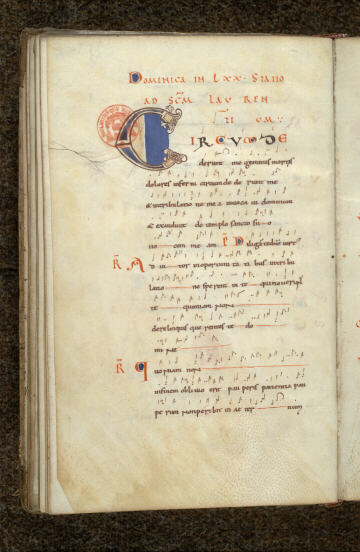 DOMINICA IN LXX. STATIO
AD SCM LAUREN
TIUM
CIRCUMDE
derunt me gemitus mortis
dolores inferni circumdederunt me
& in tribulatione mea invocavi dominum
& exaudivit de templo sancto suo
vocem meam P Diligam te d�ne virt
R A diutor in oportunitatibus in tribu
latione sperent in te qui noverunt
te quoniam non
derelinquis querentes te do
mine
R Quoniam non
in finem oblivio erit pauperis patientia pau
perum non peribit in aeternum